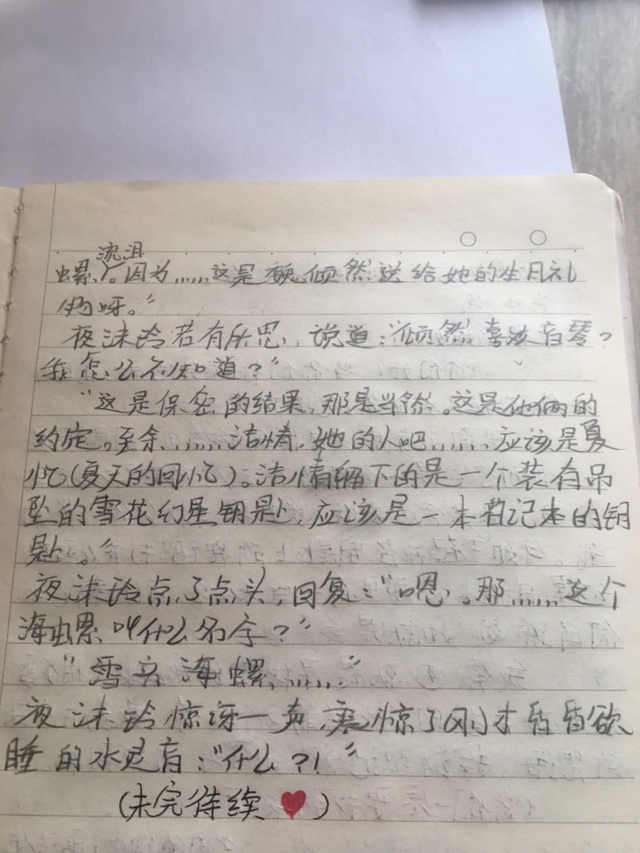 流泪
螺。因为……这是倾然送给她的生日礼
物呀。”
夜沫铃若有所思,说道:“倾然喜欢音琴?
我怎么不知道?”
“这是保密的结果,那是当然。这是他俩的
约定。至余……洁情,她的人吧……应该是夏
忆(夏天的回忆)。洁情留下的是一个装有吊
坠的雪花幻星钥匙,应该是一本笔记本的钥
匙。”
夜沫铃点了点头,回复:“嗯。那……这个
海螺叫什么名字?”
“雪音海螺……”
夜沫铃惊讶一声,惊了刚才昏昏欲
睡的水灵音:“什么?!”
(未完待续 ❤)